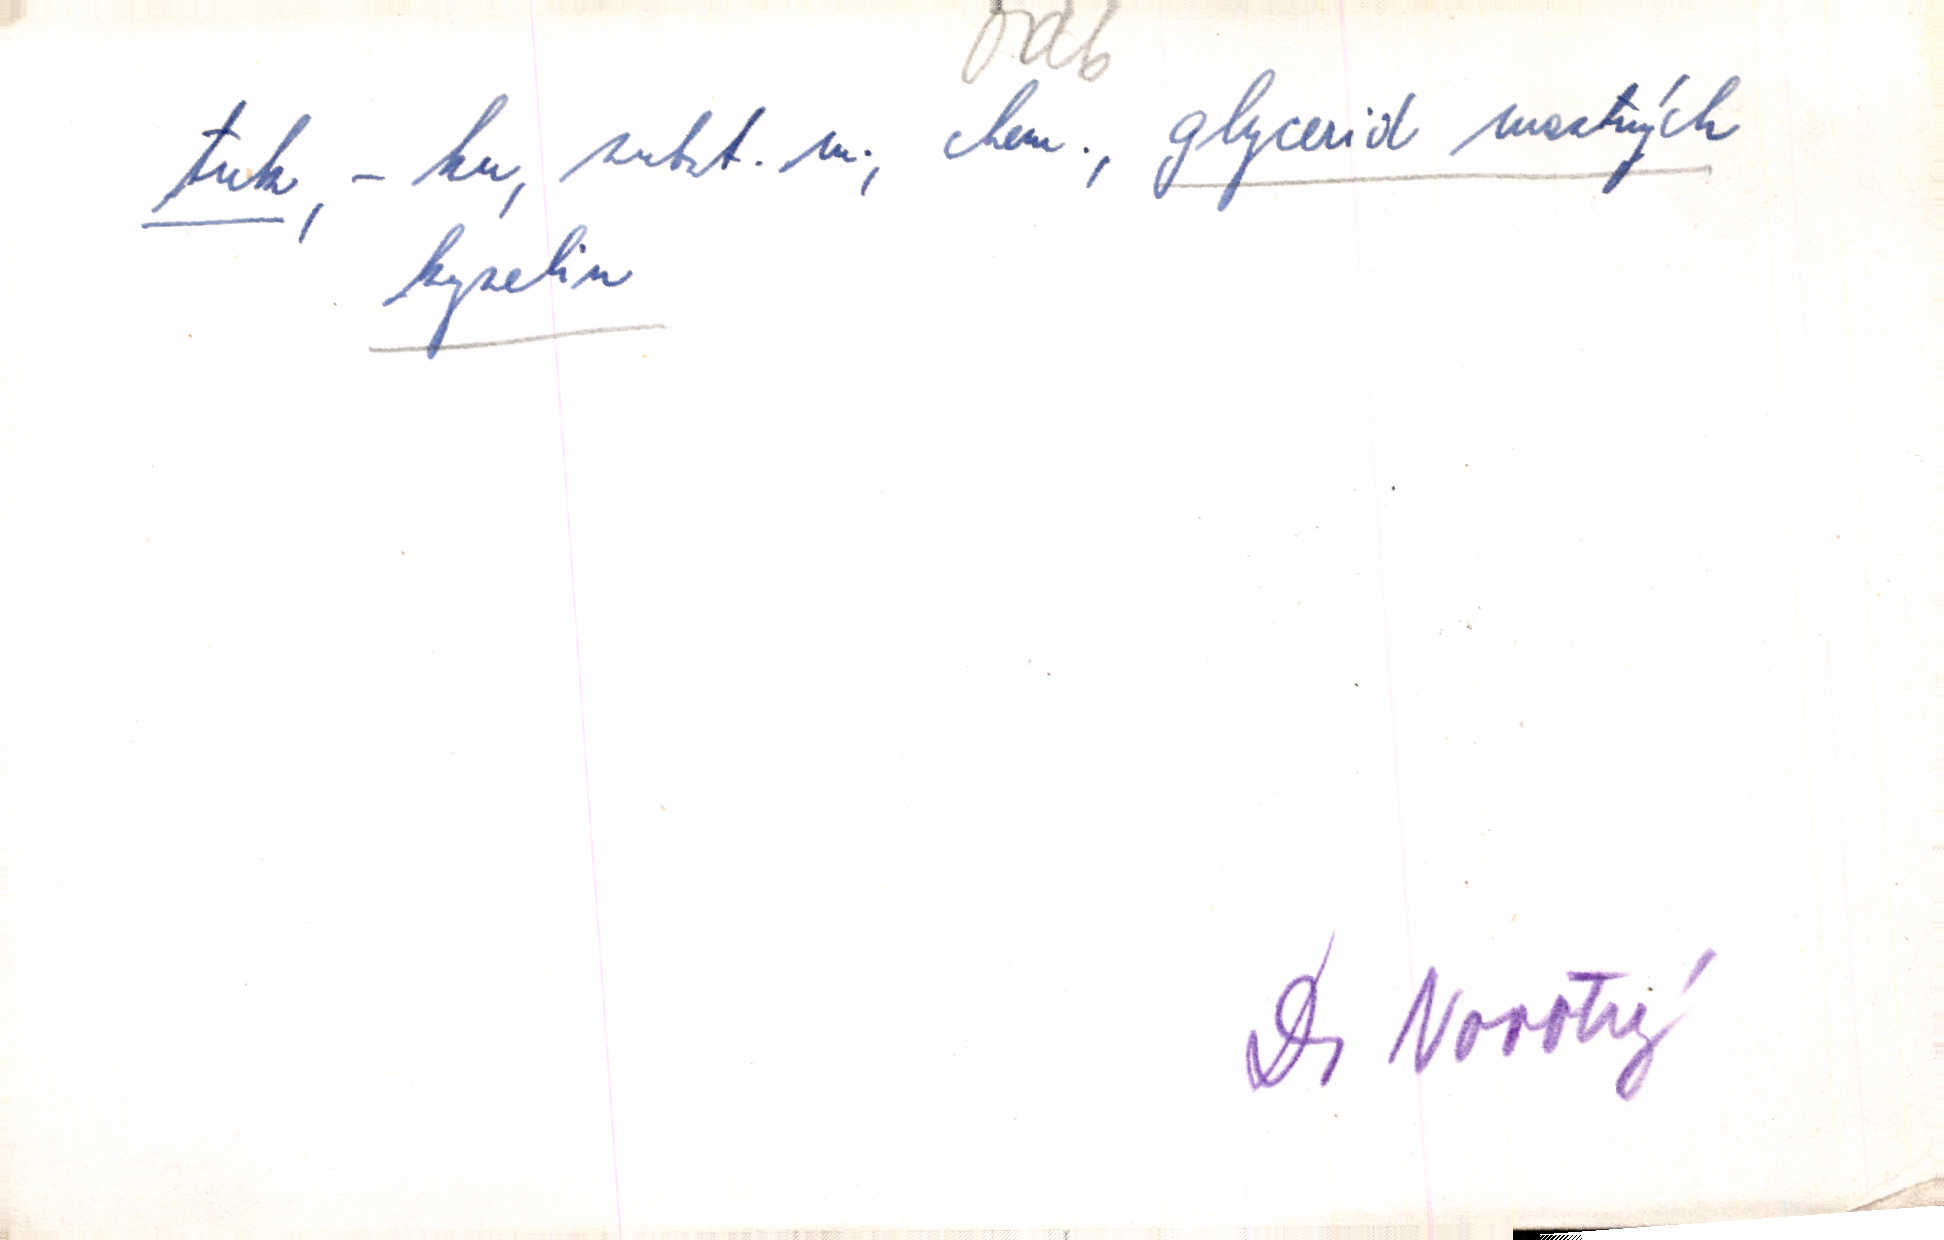 odb
tuk, - ku, subst. m., chem., glycerid mastných
kyselin
Dr Novotný